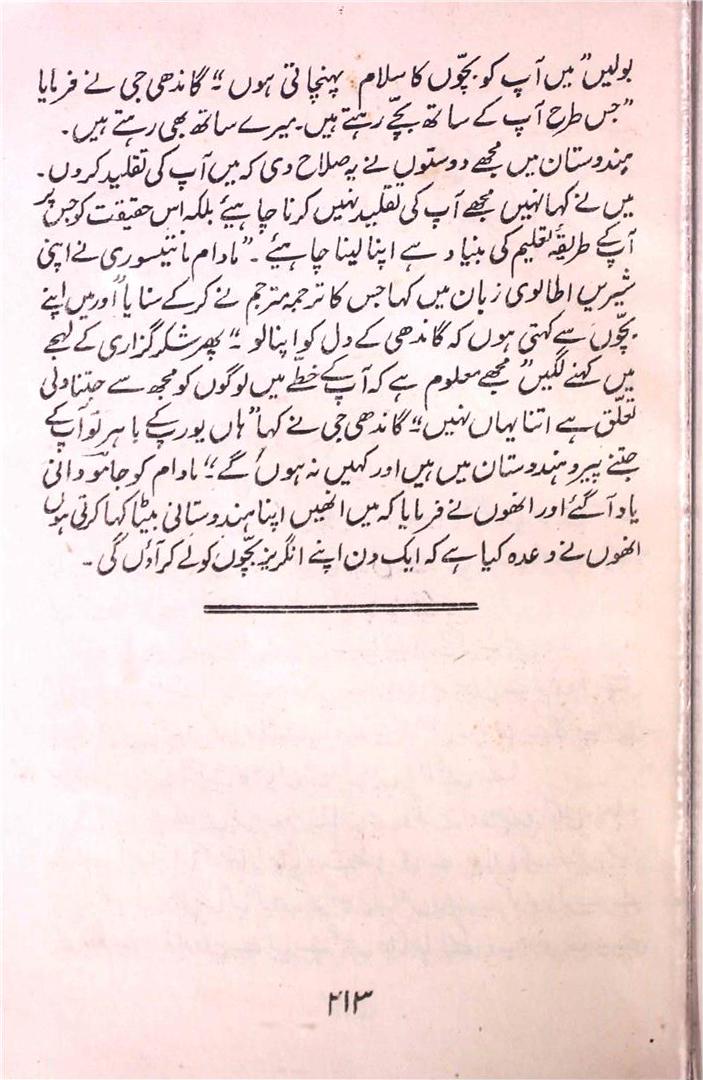 بولیں” میں آپ کو بچّوں کا سلام پہنچاتی ہوں“۔ گاندھی جی نے فرمایا
”جس طرح آپ کے ساتھ بچّے رہتے ہیں۔ میرے ساتھ بھی رہتے ہیں۔
ہندوستان میں مجھے دوستوں نے یہ صلاح دی کہ میں آپ کی تقلید کروں۔
میں نے کہا نہیں مجھے آپ کی تقلید نہیں کرنا چاہیئے بلکہ اس حقیقت کو جس پر
آپ کے طریقۂ تعلیم کی بنیاد ہے اپنا لینا چاہیئے۔“ مادام مانٹیسوری نے اپنی
شیریں اطالوی زبان میں کہا جس کا ترجمہ مترجم نے کر کے سنایا ”اور میں اپنے
بچّوں سے کہتی ہوں کہ گاندھی کے دل کو اپنا لو“۔ پھر شکر گزاری کے لہجے
میں کہنے لگیں” مجھے معلوم ہے کہ آپ کے خطّے میں لوگوں کو مجھ سے جتنا دلی
تعلّق ہے اتنا یہاں نہیں“۔ گاندھی جی نے کہا” ہاں یورپ کے باہر تو آپ کے
جتنے پیرو ہندوستان میں ہیں اور کہیں نہ ہوں گے“۔ مادام کو جانو دانی
یاد آگئے اور انھوں نے فرمایا کہ میں انھیں اپنا ہندوستانی بیٹا کہا کرتی ہوں
انھوں نے وعدہ کیا ہے کہ ایک دن اپنے انگریز بچّوں کو لے کر آؤں گی۔
۲۱۳